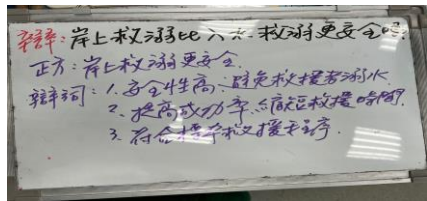 辩辩:岸上救溺比入水救溺更安全吗
正方:岸上救溺更安全.
辩词:1.安全性高:避免救援者溺水
2.提高成功率:缩短救援时间.
3.符合标准救援程序.